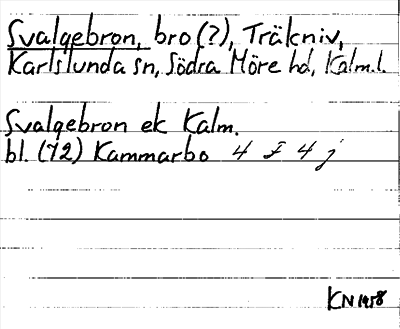 Svalgebron, bro (?), Träkniv,
Karlslunda sn, Södra Möre hd, Kalm.l.
Svalgebron ek Kalm.
bl. (72) Kammarbo 4 I 4 j
KN 1958